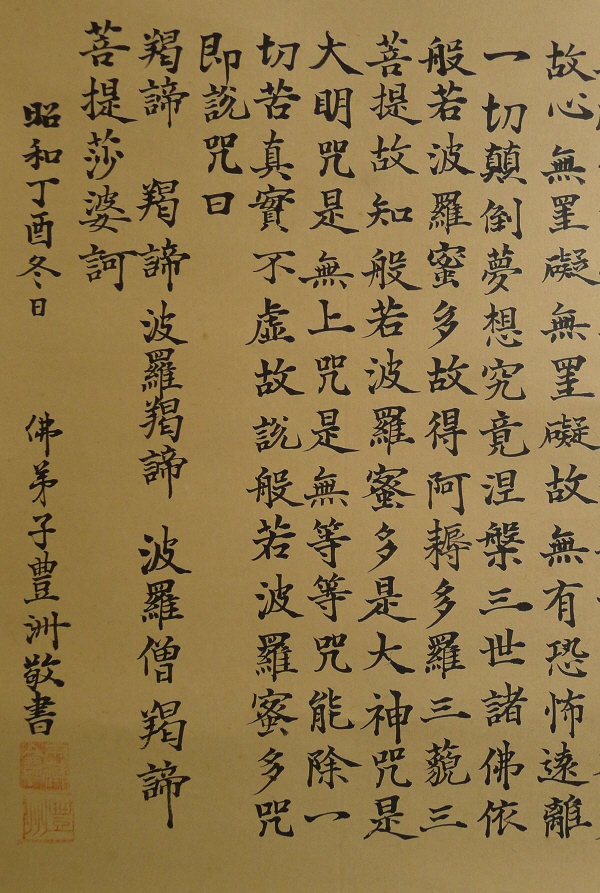 故心無罣礙無罣礙故無有恐怖遠離
一切顛倒夢想究竟涅槃三世諸佛依
般若波羅蜜多故得阿耨多羅三藐三
菩提故知般若波羅蜜多是大神咒是
大明咒是無上咒是無等等咒能除一
切苦真實不虛故說般若波羅蜜多咒
即説咒曰
羯諦 羯諦 波羅羯諦 波羅僧羯諦
菩提莎婆訶
昭和丁酉冬日 佛弟子豊洲敬書